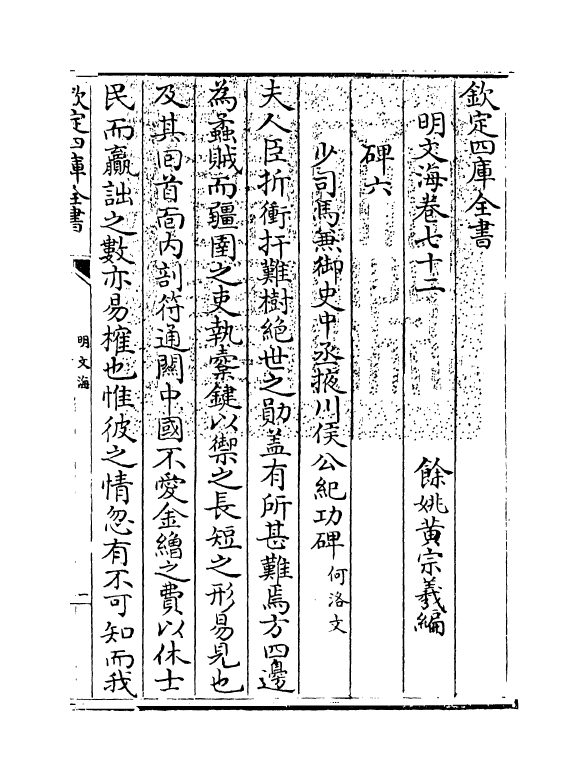 欽定四庫全書
明文海卷七十二
餘姚黄宗羲編
碑六
少司馬兼御史中丞掖川侯公紀功碑何洛文
夫人臣折衝扞難樹絶世之勛盖有所甚難焉方四邊
為蟊賊而疆圉之吏執櫜鍵以禦之長短之形易見也
及其囘首面内剖符通關中國不愛金繒之費以休士
民而贏詘之數亦易榷也惟彼之情忽有不可知而我
欽定四庫全書
明文海
二